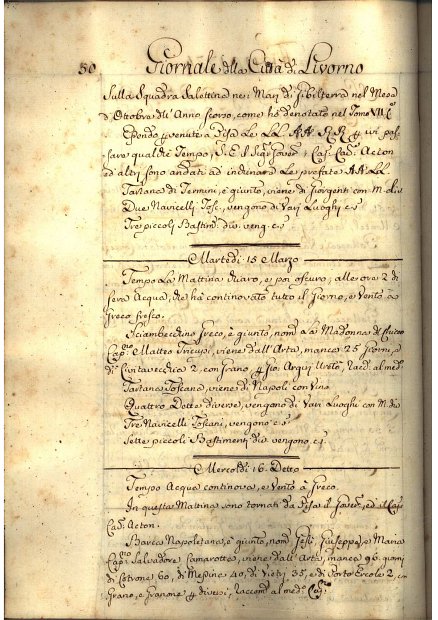 50 Giornale della Città di Livorno
Sulla Squadra Salettina nei Mari di Gibilterra nel Mese
d'Ottobre dell'Anno scorso, come hò denotato nel Tomo VII
Essendo venute a Pisa Le LL. AA. RR. p ivi pas
sare qualche Tempo, S. E. il Sig.r Gover. e Cav. Acton
ed altri sono andati ad inchinare Le prefate AA. LL.
Tartana di Termini, è giunto, viene di Girgenti con
Due Navicelli Tosc. vengono di Varj Luoghi c. s.
Tre piccoli Bastim. div. veng. c. s.
Martedì 15 Marzo
Tempo La Mattina chiaro, e poi oscuro, alle ore 2 di
sera Acqua, che hà continovato tutto il Giorno, e Vento a
Greco fresco.
Sciambecchino Greco, è giunto, nom.o La Madonna
Cap.no Matteo Tricupi, viene dall'Arta, manca 25 Giorni, e
di Civitavecchia 2, con Grano, p Gio. Racc. al med.
Tartana Toscana, viene di Napoli con Vino
Quattro Dette diverse, vengono di Varj Luoghi con M. div.
Tre Navicelli Toscani, vengono c. s.
Sette piccoli Bastimenti div. vengono c. s.
Mercoldì 16 Detto
Tempo Acqua continova, e Vento à Greco.
In questa Mattina sono tornati da Pisa il Gover. ed il
Cav. Acton.
Barca Napoletana, è giunto, nom.o Gesù Giuseppe, e Maria
Cap.no Salvadore Camarotta, viene dall'Arta, manca 96 giorni
di Cotrone 60, di Messina 40, di Vietri 35, e di Porto Ercole 2, con
Grano, e Granone p diversi, Raccom. al med.o Cap.no